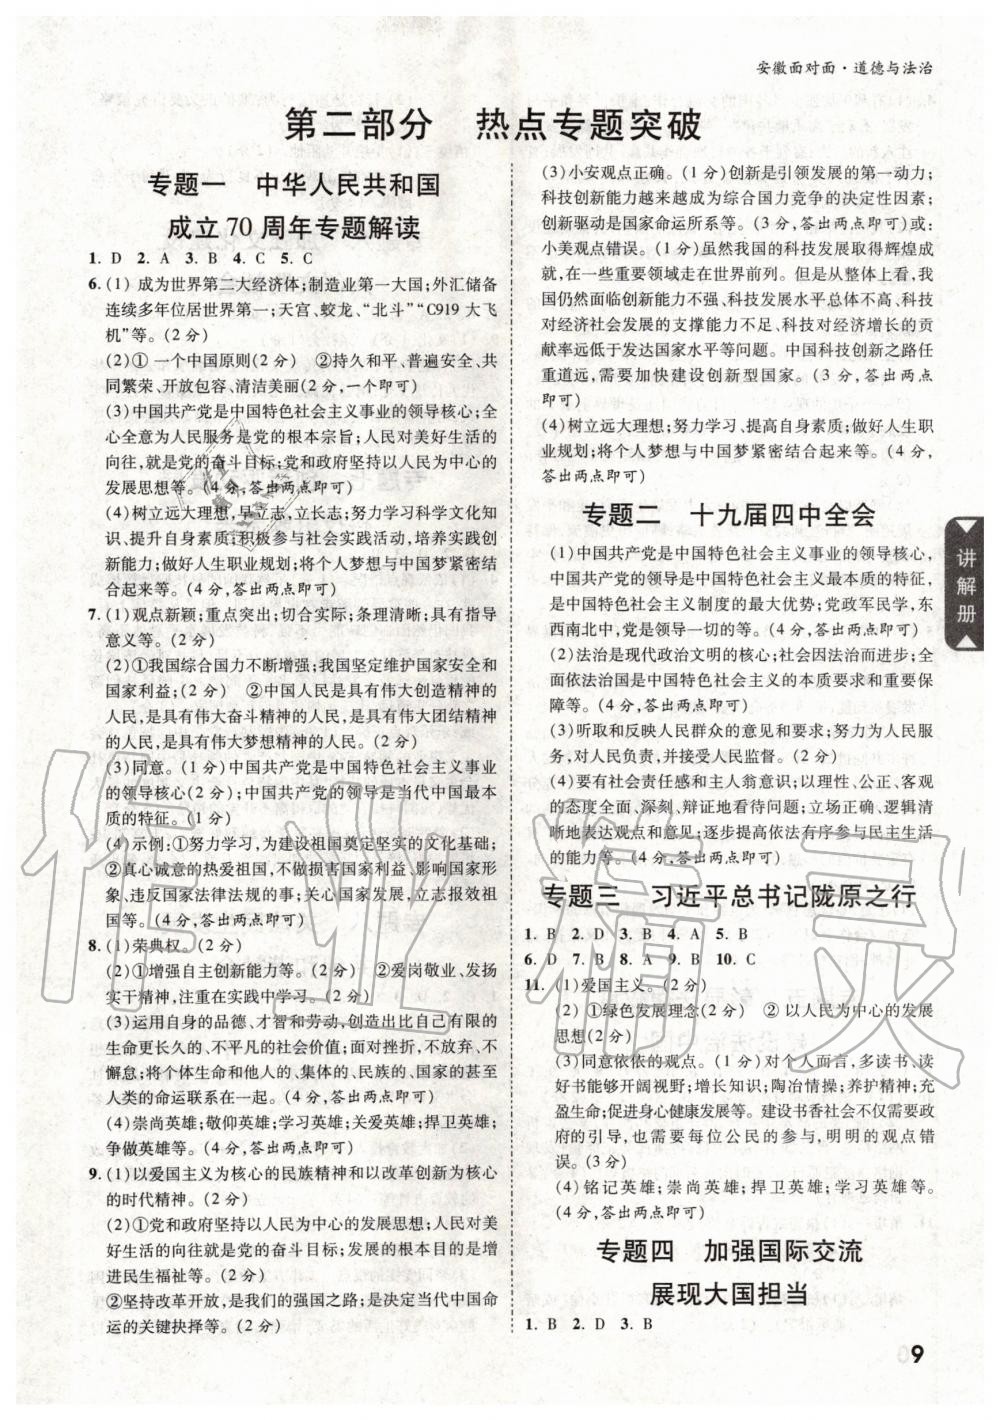 安徽面对面·道德与法治
第二部分 热点专题突破
专题一 中华人民共和国
成立70周年专题解读
1. D 2. A 3. B 4. C 5. C
6. (1)成为世界第二大经济体;制造业第一大国;外汇储备
连续多年位居世界第一;天宫、蛟龙、“北斗”“C919大飞
机”等。(2分)
(2)①一个中国原则(2分) ②持久和平、普遍安全、共
同繁荣、开放包容、清洁美丽(2分,一个即可)
(3)中国共产党是中国特色社会主义事业的领导核心;全
心全意为人民服务是党的根本宗旨;人民对美好生活的
向往,就是党的奋斗目标;党和政府坚持以人民为中心的
发展思想等。(4分,答出两点即可)
(4)树立远大理想,早立志,立长志;努力学习科学文化知
识,提升自身素质;积极参与社会实践活动,培养实践创
新能力;培养自身职业规划;将个人梦想与中国梦紧密结
合起来等。(4分,答出两点即可)
7. (1)观点新颖;重点突出;切合实际;条理清晰;具有指导
意义等。(2分)
(2)①我国综合国力不断增强;我国坚定维护国家安全和
国家利益;(2分) ②中国人民是具有伟大创造精神的
人民,是具有伟大奋斗精神的人民,是具有伟大团结精神
的人民,是具有伟大梦想精神的人民。(2分)
(3)同意。(1分)中国共产党是中国特色社会主义事业
的领导核心(2分);中国共产党的领导是当代中国最本
质的特征。(1分)
(4)示例:①努力学习,为建设祖国奠定坚实的文化基础;
②真心诚意的热爱祖国,不做损害国家利益、影响国家形
象、违反国家法律法规的事情;关心国家发展,立志报效祖
国等。(4分,答出两点即可)
8. (1)荣典权。(2分)
(2)①增强自主创新能力等。(2分) ②爱岗敬业、发扬
实干精神,注重在实践中学习。(2分)
(3)运用自身的品德、才智和劳动,创造出比自己有限的
生命更长久的、不平凡的社会价值;面对挫折,不放弃、不
懈怠;将个体生命和他人的、集体的、民族的、国家的甚至
人类的命运联系在一起。(4分,答出两点即可)
(4)崇尚英雄;敬仰英雄;学习英雄;关爱英雄;捍卫英雄;
争做英雄等。(4分,答出两点即可)
9. (1)以爱国主义为核心的民族精神和以改革创新为核心
的时代精神。(2分)
(2)①党和政府坚持以人民为中心的发展思想;人民对美
好生活的向往就是党的奋斗目标;发展的根本目的就是增
进民生福祉等。(2分)
②坚持改革开放,是我们的强国之路;是决定当代中国命
运的关键抉择等。(2分)
(3)小安观点正确。(1分)创新是引领发展的第一动力;
科技创新能力越来越成为综合国力竞争的决定性因素;
创新驱动是国家命运所系等。(3分,答出两点即可)或:
小美观点错误。(1分)虽然我国的科技发展取得辉煌成
就,在一些重要领域走在世界前列。但从整体上看,我
国仍然面临创新能力不强、科技发展水平总体不高、科技
对经济社会发展的支撑能力不足、对经济增长的贡
献率远低于发达国家水平等问题。中国科技创新之路任
重道远,需要加快建设创新型国家。(3分,答出两点
即可)
(4)树立远大理想;努力学习、提高自身素质;做好人生职
业规划;将个人梦想与中国梦紧密结合起来等。(4分,
答出两点即可)
专题二 十九届四中全会
(1)中国共产党是中国特色社会主义事业的领导核心,
中国共产党的领导是中国特色社会主义最本质的特征,
是中国特色社会主义制度的最大优势;党政军民学,东
西南北中,党是领导一切的等。(4分,答出两点即可)
(2)法治是现代政治文明的核心;社会因法治而进步;全
面依法治国是中国特色社会主义的本质要求和重要保
障等。(4分,答出两点即可)
(3)听取和反映人民群众的意见和要求;努力为人民服
务,对人民负责,并接受人民监督。(2分)
(4)要有社会责任感和主人翁意识;以理性、公正、客观
的态度全面、深刻、辩证地看待问题;立场正确、逻辑清
晰地表达观点和意见;逐步提高依法有序参与民主生活
的能力等。(4分,答出两点即可)
专题三 习近平总书记陇原之行
1. B 2. D 3. B 4. A 5. B
6. D 7. B 8. A 9. B 10. C
11. (1)爱国主义。(2分)
(2)①绿色发展理念(2分) ②以人民为中心的发展
思想(2分)
(3)同意依依的观点。(1分)对个人而言,多读书、读
好书能够开阔视野;增长知识;陶冶情操;养护精神;充
盈生命;促进身心健康发展等。建设书香社会不仅需要政
府的引导,也需要每位公民的参与,明明的观点错
误。(3分)
(4)铭记英雄;崇尚英雄;捍卫英雄;学习英雄等。
(2分,答出两点即可)
专题四 加强国际交流
展现大国担当
1. B 2. D 3. B
讲解册
09
作业精灵